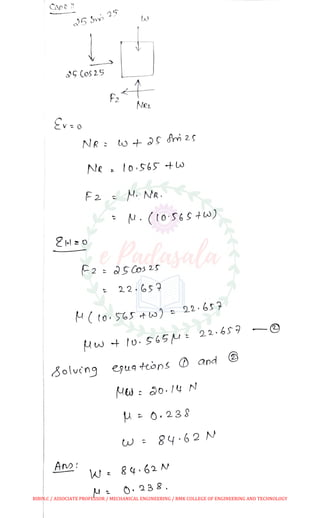 Case 2
25 Sin 25
W
25 Cos 25
F2
NR2
ΣV = 0
NR = W + 25 Sin 25
NR = 10.565 + W
F2 = μ. NR.
= μ. (10.565 + W)
ΣH = 0
F2 = 25 Cos 25
= 22.657
μ (10.565 + W) = 22.657
μW + 10.565 μ = 22.657 — ②
Solving equations ① and ②
μW = 20.14 N
μ = 0.238
W = 84.62 N
Ans: W = 84.62 N
μ = 0.238.
e Padasala
BIBIN.C / ASSOCIATE PROFESSOR / MECHANICAL ENGINEERING / RMK COLLEGE OF ENGINEERING AND TECHNOLOGY